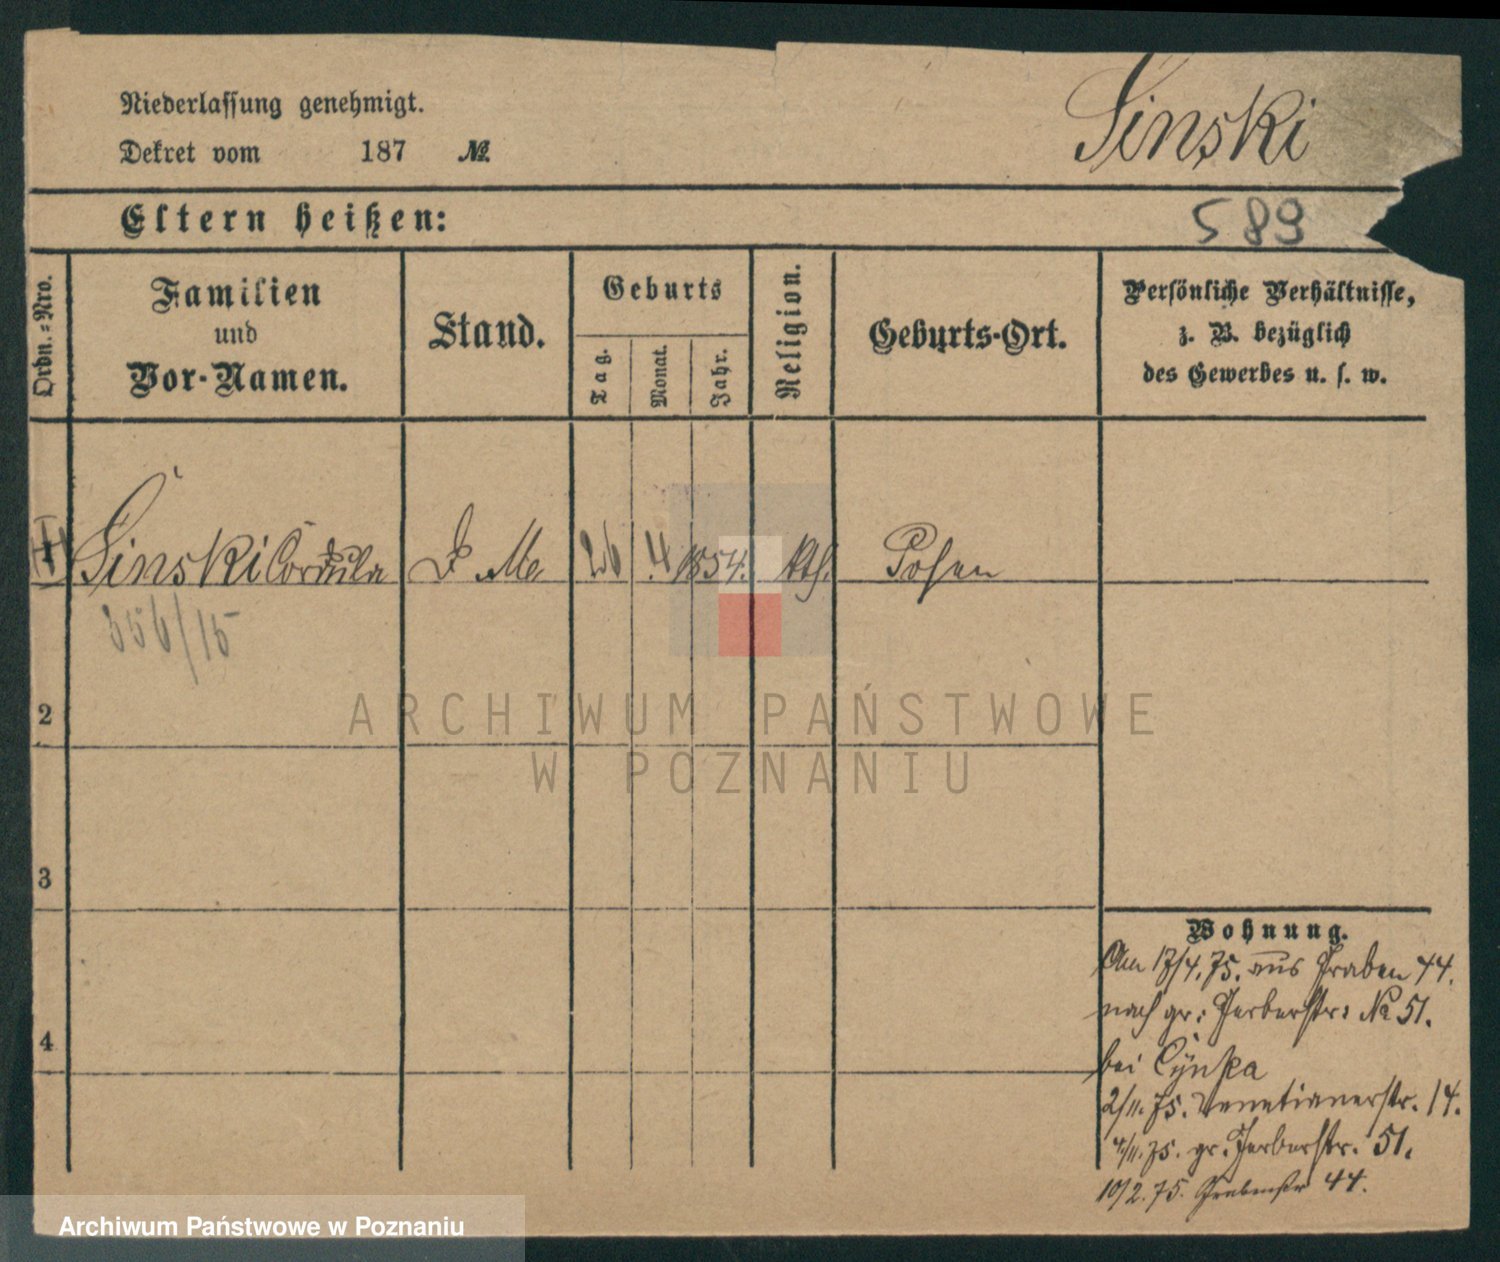 Niederlassung genehmigt.
Dekret vom 187 №
Sinski
Eltern heißen:
589
Ordn.=Nro.
Familien
und
Vor-Namen.
Stand.
Geburts
Tag.
Monat.
Jahr.
Religion.
Geburts-Ort.
Persönliche Verhältnisse,
z. B. bezüglich
des Gewerbes u. s. w.
Sinski Cordula
26 4 1854. kth. Posen
356/15
2
3
4
Wohnung.
Am 17/4. 75. aus Graben 44.
nach gr: Gerberstr: № 51.
bei
2/11. 75. Venetianerstr. 14.
4/11. 75. gr. Gerberstr. 51.
10/2. 75. Grabenstr 44.
ARCHIWUM PAŃSTWOWE
W POZNANIU
Archiwum Państwowe w Poznaniu